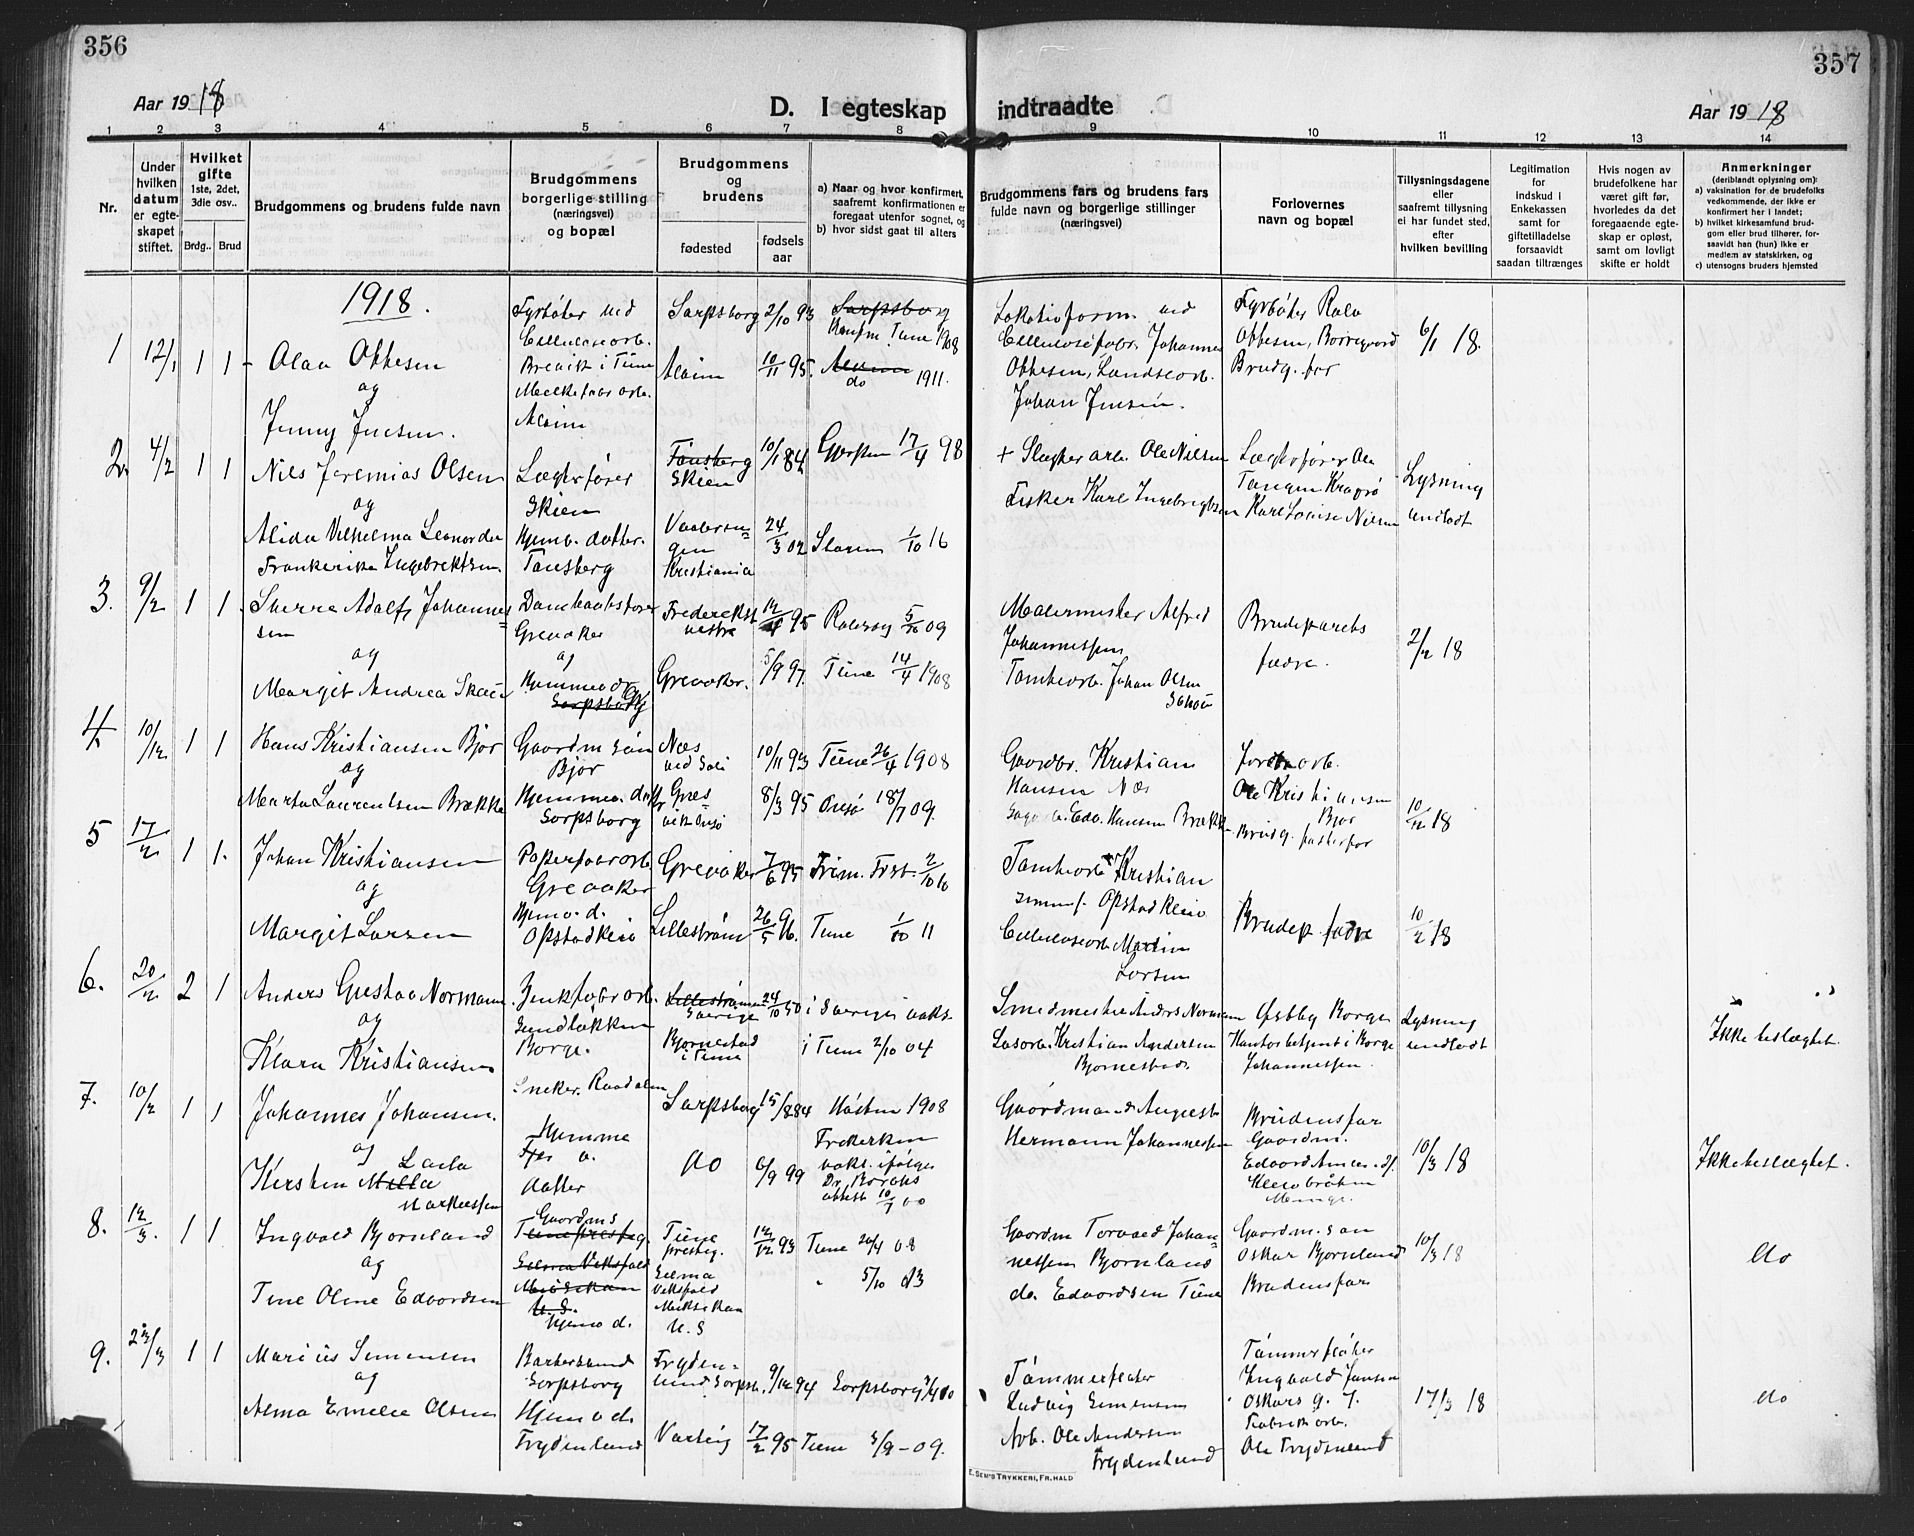 356
357
Aar 1918
D. I egteskap indtraadte
Aar 1918
1 2 3 4 5 6 7 8 9 10 11 12 13 14
Nr.
Under hvilken datum er egteskapet stiftet.
Hvilket gifte 1ste, 2det, 3die osv..
Brdg.. Brud
Brudgommens og brudens fulde navn
Brudgommens borgerlige stilling (næringsvei) og bopæl
Brudgommens og brudens
fødested
fødsels aar
a) Naar og hvor konfirmert, saafremt konfirmationen er foregaat utenfor sognet, og
b) hvor sidst gaat til alters
Brudgommens fars og brudens fars fulde navn og borgerlige stillinger (næringsvei)
Forlovernes navn og bopæl
Tillysningsdagene eller saafremt tillysning ei har fundet sted, efter hvilken bevilling
Legitimation for indskud i Enkekassen samt for giftetilladelse forsaavidt saadan tiltrænges
Hvis nogen av brudefolkene har været gift før, hvorledes da det foregaaende egteskap er opløst, samt om lovligt skifte er holdt
Anmerkninger
(deriblandt oplysning om):
a) vaksination for de brudefolks vedkommende, der ikke er konfirmert her i landet;
b) hvilket kirkesamfund brudgom eller brud tilhører, forsaavidt han (hun) ikke er medlem av statskirken, og
c) utensogns bruders hjemsted
1918.
1 12/1 1 1
Olaf Ottesen
og
Jenny Jensen.
Fyrbøter ved
Cellulosearb.
Brevik i Tune
Sarpsborg 2/10 93
Sarpsborg
Konfm Tune 1908
10/11 95.
do 1911.
Cellulosefabr. Johannes
Ottesen, Landsarb.
Johan Jensen.
Fyrbøter
Ottesen, Borregaard
Brudg. far
6/1 18.
2. 4/2 1 1
Nils Jeremias Olsen
og
Alida Vilhelma Leonarda
Ingebrektsen.
Lægterfører
Skien
Hjemv. datter.
Tønsberg
Tønsberg
Skien
10/1 84
Gjerpen 17/4 98
Kristiania
24/3 02
Slagen 1/10 16
Ole Nilsen
Fisker Karl Ingebrigtsen
Lægterfører Ole
Tangen Kragrø
Karl Louise Nilsen
Lysning
undladt
3. 9/2 1 1
Sverre Adolf Johannes=
sen
og
Margit Andrea
Greaaker
og
Sarpsborg
Frederikst
vestre
12/4 95
Rolvsøy 5/10 09
Greaaker.
5/9 97.
Tune 14/4 1908
Malermester Alfred
Johannessen
Tomtearb. Johan Olsen
Brudeparets
fædre.
2/2 18
4. 10/12 1 1
Hans Kristiansen Bjor
og
Marta Laurentsen Brække
Gaardm søn
Bjor
Hjemmev. dat
Sarpsborg
Næs
ved Soli
10/11 93
Tune 26/4 1908
8/3 95
Onsø 18/7 09.
Gaardbr. Kristian
Hansen Næs
Edv. Hansen Brække
Jordarb.
Ole Kristiansen
Bjor
Brudg.
10/12 18
5 17/2 1 1.
Johan Kristiansen
og
Margit Larsen
Papirfabr.arb.
Greaaker
Hjemv. d.
Greaaker 7/6 95
Trim. Frst. 2/10 10
Lillestrøm 26/5 96.
Tune 1/10 11
Tomtearb. Kristian
Cellulosearb. Martin
Larsen
Brudep. fædre
10/2 18
6. 20/2 2 1
Anders Gustav Normann
og
Klara Kristiansen
Zinkfabr.arb.
Sandbakken
Borge.
Lillestrømmen
Sverige
24/10 50
i Sverige vaks.
Bjørnestad
i Tune
i Tune 2/10 04
Smedmester Anders Normann
Løsarb. Kristian Andersen
Bjørnestad
Østby Borge
Kontorbetjent i Borge
Johannessen.
Lysning
undladt
Ikke beslægtet.
7. 10/2 1 1
Johannes Johansen.
og
Kirsten Milla
Laila
Markussen
Sneker. Raadalen
Hjemme
v.
datter
Sarpsborg 15/8 84
Høsten 1908
do 6/9 99
Frikirken
vaks. ifølge
Dr. Borchs
attest 10/7 00
Gaardmand August
Hermann Johannessen
Brudensfar
Gaardm.
10/3 18
Ikke beslægtet.
8. 12/3. 1 1
Ingvald Bjørnland
og
Tine Oline Edvardsen
Gaardms
Hjemv d.
Tune
prestg.
12/12 93
Tune 20/4 08
Selma
U. S
" 5/10 13
Gaardm Torvald Johan=
nessen Bjørnland
do. Edvardsen Tune
Gaardm. søn
Oskar Bjørnland
Brudensfar
10/3 18
do
9. 23/3 1 1
Marius Simensen
og
Alma Emelie Olsen
Sarpsborg
Hjemv d.
Frydenlund
Fryden=
lund Sarpsb.
9/12 94
Sarpsborg
Varteig 17/2 95
Tune 3/9 - 09.
Tømmerfløter
Ludvig Simensen
Arb. Ole Andersen
Frydenlund
Tømmerfløter
Ingvald Jansen
Oskars g. 7.
Fabrikarb.
Ole Frydenlund
17/3 18
do
E. SEM'S TRYKKERI, FR.HALD